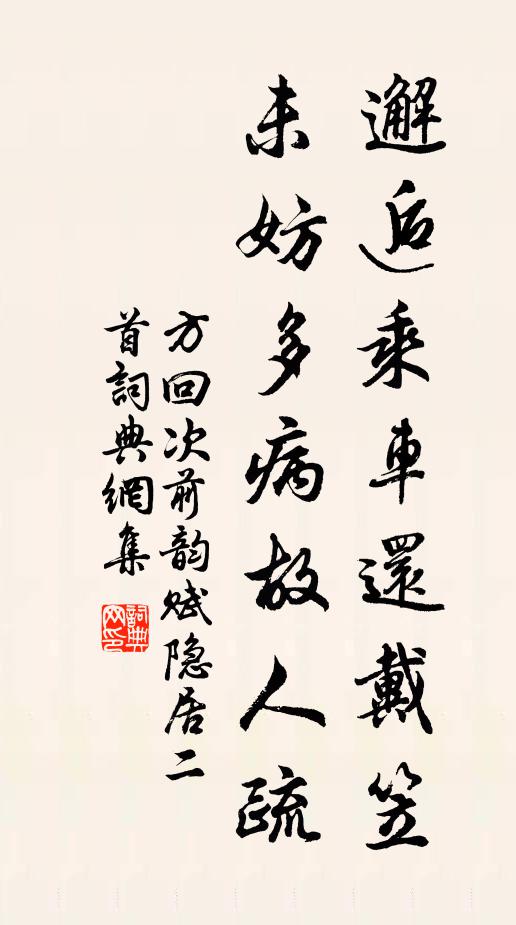 邂逅乘車還戴笠
未妨多病故人疏
方回次前韵赋隐居二
首詞典網集
詞典网印